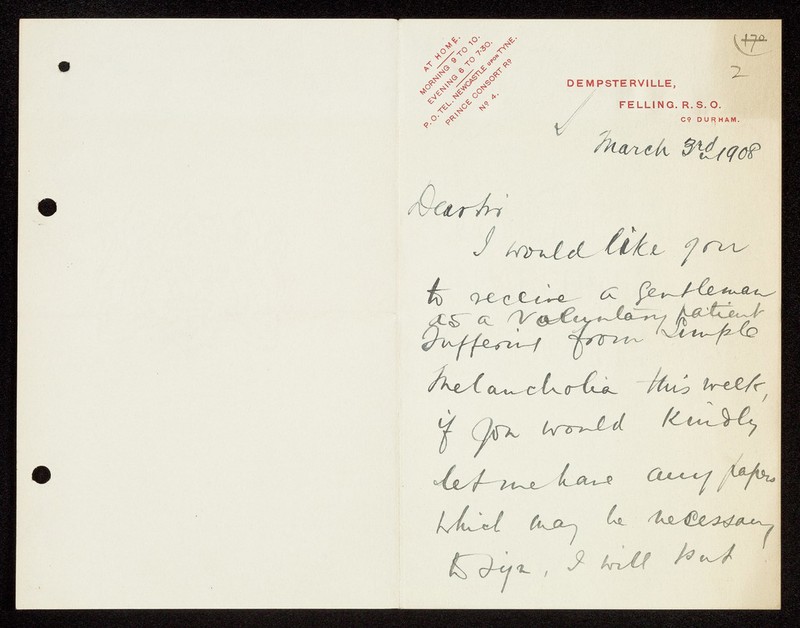 AT HOME.
MORNING 9 TO 10.
EVENING 6 TO 7.30.
P.O. TEL. NEWCASTLE UPON TYNE.
PRINCE CONSORT RD
No 4.
170
2
DEMPSTERVILLE,
FELLING. R. S. O.
Co DURHAM.
March 3rd 1908
Dear Sir
I would like you
to receive a gentleman
as a Voluntary patient
Suffering from Simple
Melancholia this week,
if you would Kindly
let me have any papers
which may be necessary
to sign, I will put